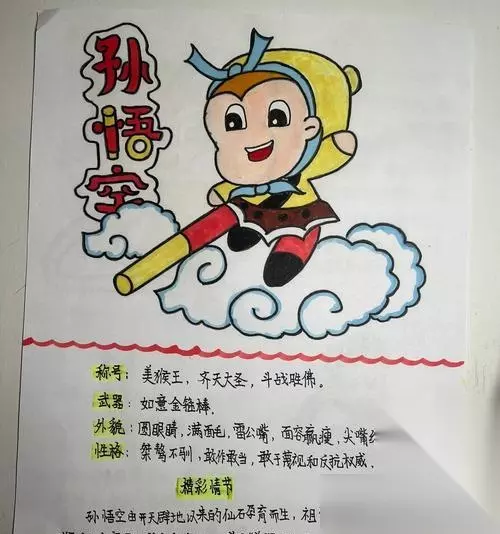 孙悟空
称号：美猴王，齐天大圣，斗战胜佛。
武器：如意金箍棒.
外貌：圆眼睛，满面毛，雷公嘴，面容羸瘦，尖嘴
性格：桀骜不驯，敢作敢当，敢于蔑视和反抗权威.
精彩情节
孙悟空由开天辟地以来的仙石孕育而生，祖